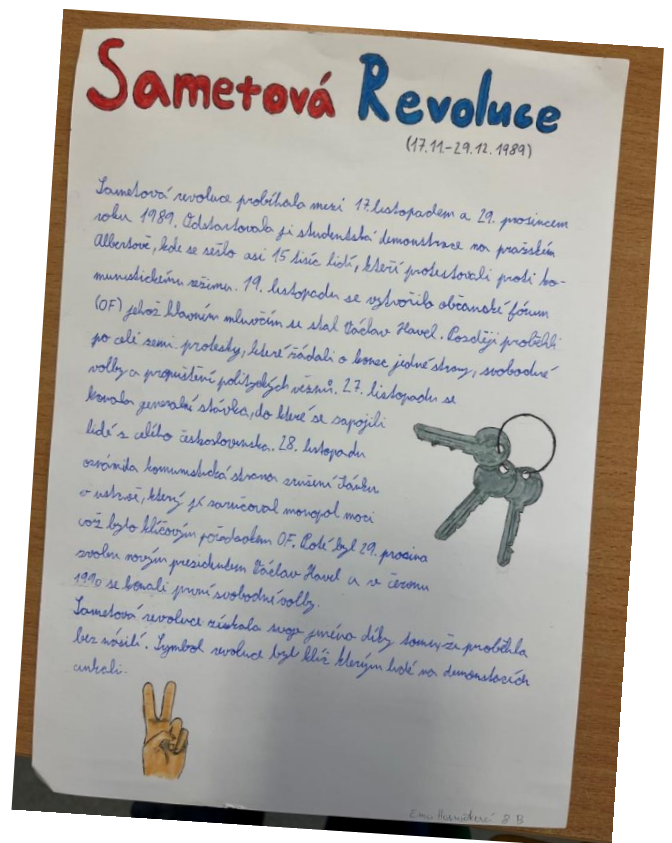 Sametová Revoluce
(17.11-29.12.1989)
Sametová revoluce probíhala mezi 17.listopadem a 29. prosincem
roku 1989. Odstartovala ji studentská demonstrace na pražském
Albertově, kde se sešlo asi 15 tisíc lidí, kteří protestovali proti ko-
munistickému režimu. 19. listopadu se vytvořilo občanské fórum
(OF) jehož hlavním mluvčím se stal Václav Havel. Později proběhli
po celé zemi protesty, které žádali o konec jedné strany, svobodné
volby a propuštění politických vězňů. 27. listopadu se
konala generální stávka, do které se zapojili
lidé z celého československa. 28. listopadu
oznámila komunistická strana zrušení článku
v ústavě, který jí zaručoval monopol moci
což bylo klíčovým požadavkem OF. Poté byl 29. prosince
zvolen novým presidentem Václav Havel a v červnu
1990 se konali první svobodné volby.
Sametová revoluce získala svoje jméno díky tomu, že proběhla
bez násilí. Symbol revoluce byl klíč kterým lidé na demonstacích
cinkali.
8 B